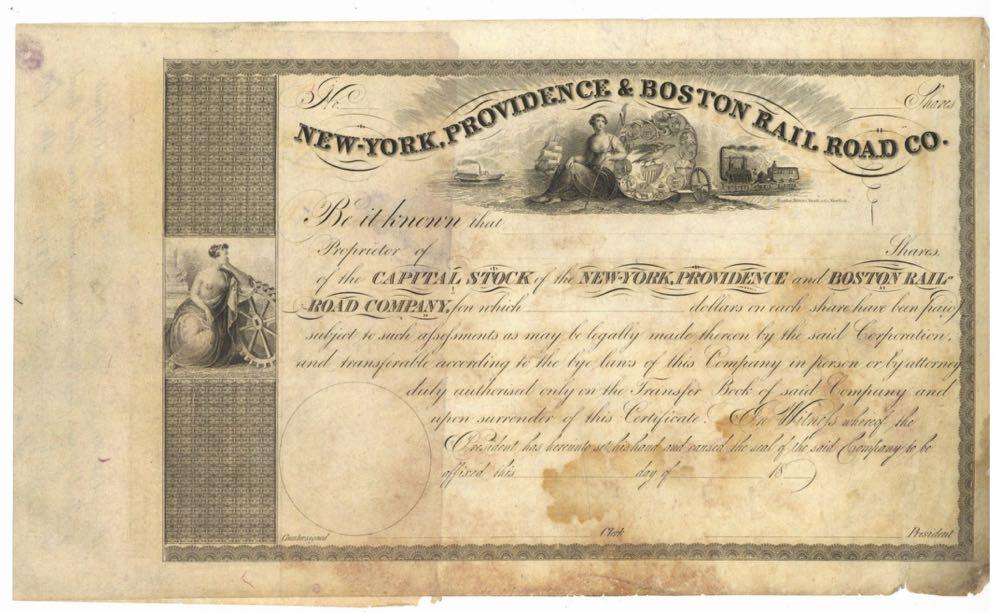 No. Shares
NEW-YORK, PROVIDENCE & BOSTON RAIL ROAD CO.
Be it known that
Proprietor of Shares
of the CAPITAL STOCK of the NEW-YORK, PROVIDENCE and BOSTON RAIL-
ROAD COMPANY, for which dollars on each share have been paid,
subject to such assessments as may be legally made thereon by the said Corporation,
and transferable according to the bye laws of this Company in person or by attorney
duly authorised only on the Transfer Book of said Company and
upon surrender of this Certificate. In Witness whereof the
President has hereunto set his hand and caused the seal of the said Company to be
affixed this day of 18
Countersigned Clerk President